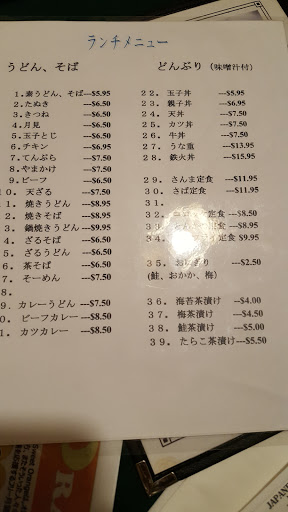 ランチメニュー
うどん、そば
1.素うどん、そば---$5.95
2. たぬき ---$6.50
3. きつね ---$6.50
4. 月見 ---$6.50
5. 玉子とじ ---$6.50
6. チキン ---$6.95
7. てんぷら ---$7.50
8. やまかけ ---$7.50
9. ビーフ ---$6.50
0. 天ざる ---$7.50
1. 焼きうどん ---$8.95
2. 焼きそば ---$8.95
3. 鍋焼きうどん ---$9.95
4. ざるそば ---$6.50
5. ざるうどん ---$6.50
6. 茶そば ---$6.50
7. そーめん ---$7.50
8.
9. カレーうどん ---$7.50
0. ビーフカレー ---$8.50
1. カツカレー ---$8.50
どんぶり (味噌汁付)
22. 玉子丼 ---$5.95
23. 親子丼 ---$6.95
24. 天丼 ---$7.50
25. カツ丼 ---$7.50
26. 牛丼 ---$7.50
27. うな重 ---$13.95
28. 鉄火丼 ---$15.95
29. さんま定食 ---$11.95
30. さば定食 ---$11.95
31.
32. 定食 ---$8.50
33. 定食 ---$8.95
34. 定食 $9.95
35. おにぎり ---$2.50
(鮭、おかか、梅)
36. 海苔茶漬け ---$4.00
37. 梅茶漬け ---$4.50
38. 鮭茶漬け ---$5.00
39. たらこ茶漬け ---$5.50
JAPANE